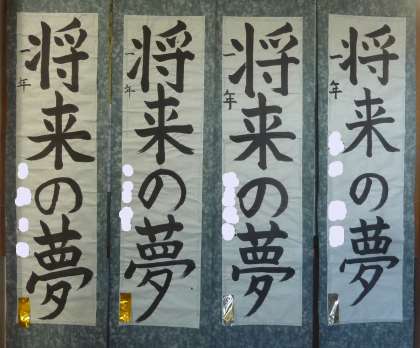 将来の夢
一年
将来の夢
一年
将来の夢
一年
将来の夢
一年